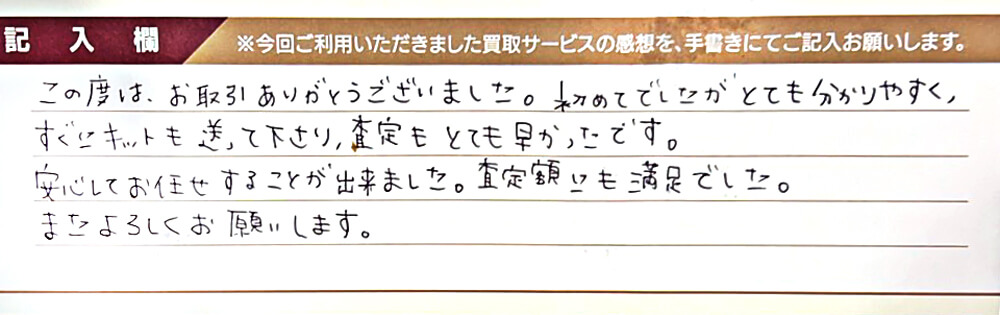 記入欄 ※今回ご利用いただきました買取サービスの感想を、手書きにてご記入お願いします。
この度は、お取引ありがとうございました。初めてでしたがとても分かりやすく,
すぐにキットも送って下さり,査定もとても早かったです。
安心してお任せすることが出来ました。査定額にも満足でした。
またよろしくお願いします。